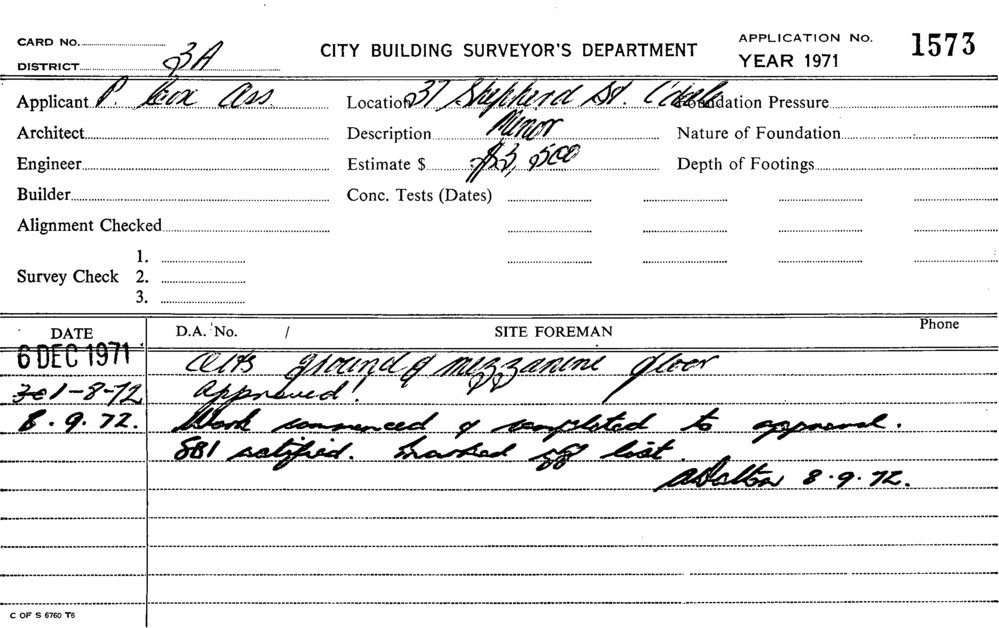 CARD No.
DISTRICT 3A
CITY BUILDING SURVEYOR'S DEPARTMENT
APPLICATION No. 1573
YEAR 1971
Applicant P. Cox Ass.
Location 37 Shepherd St. C'dale
Foundation Pressure
Architect
Description Minor
Nature of Foundation
Engineer
Estimate $ $3,500
Depth of Footings
Builder
Conc. Tests (Dates)
Alignment Checked
Survey Check
1.
2.
3.
DATE D.A. No. / SITE FOREMAN Phone
6 DEC 1971 Alts ground & mezzanine floor
1-8-72 Approved!
8.9.72. Work commenced & completed to approval.
SB1 notified. Marked off list.
ADalton 8.9.72.
C OF S 6760 T6